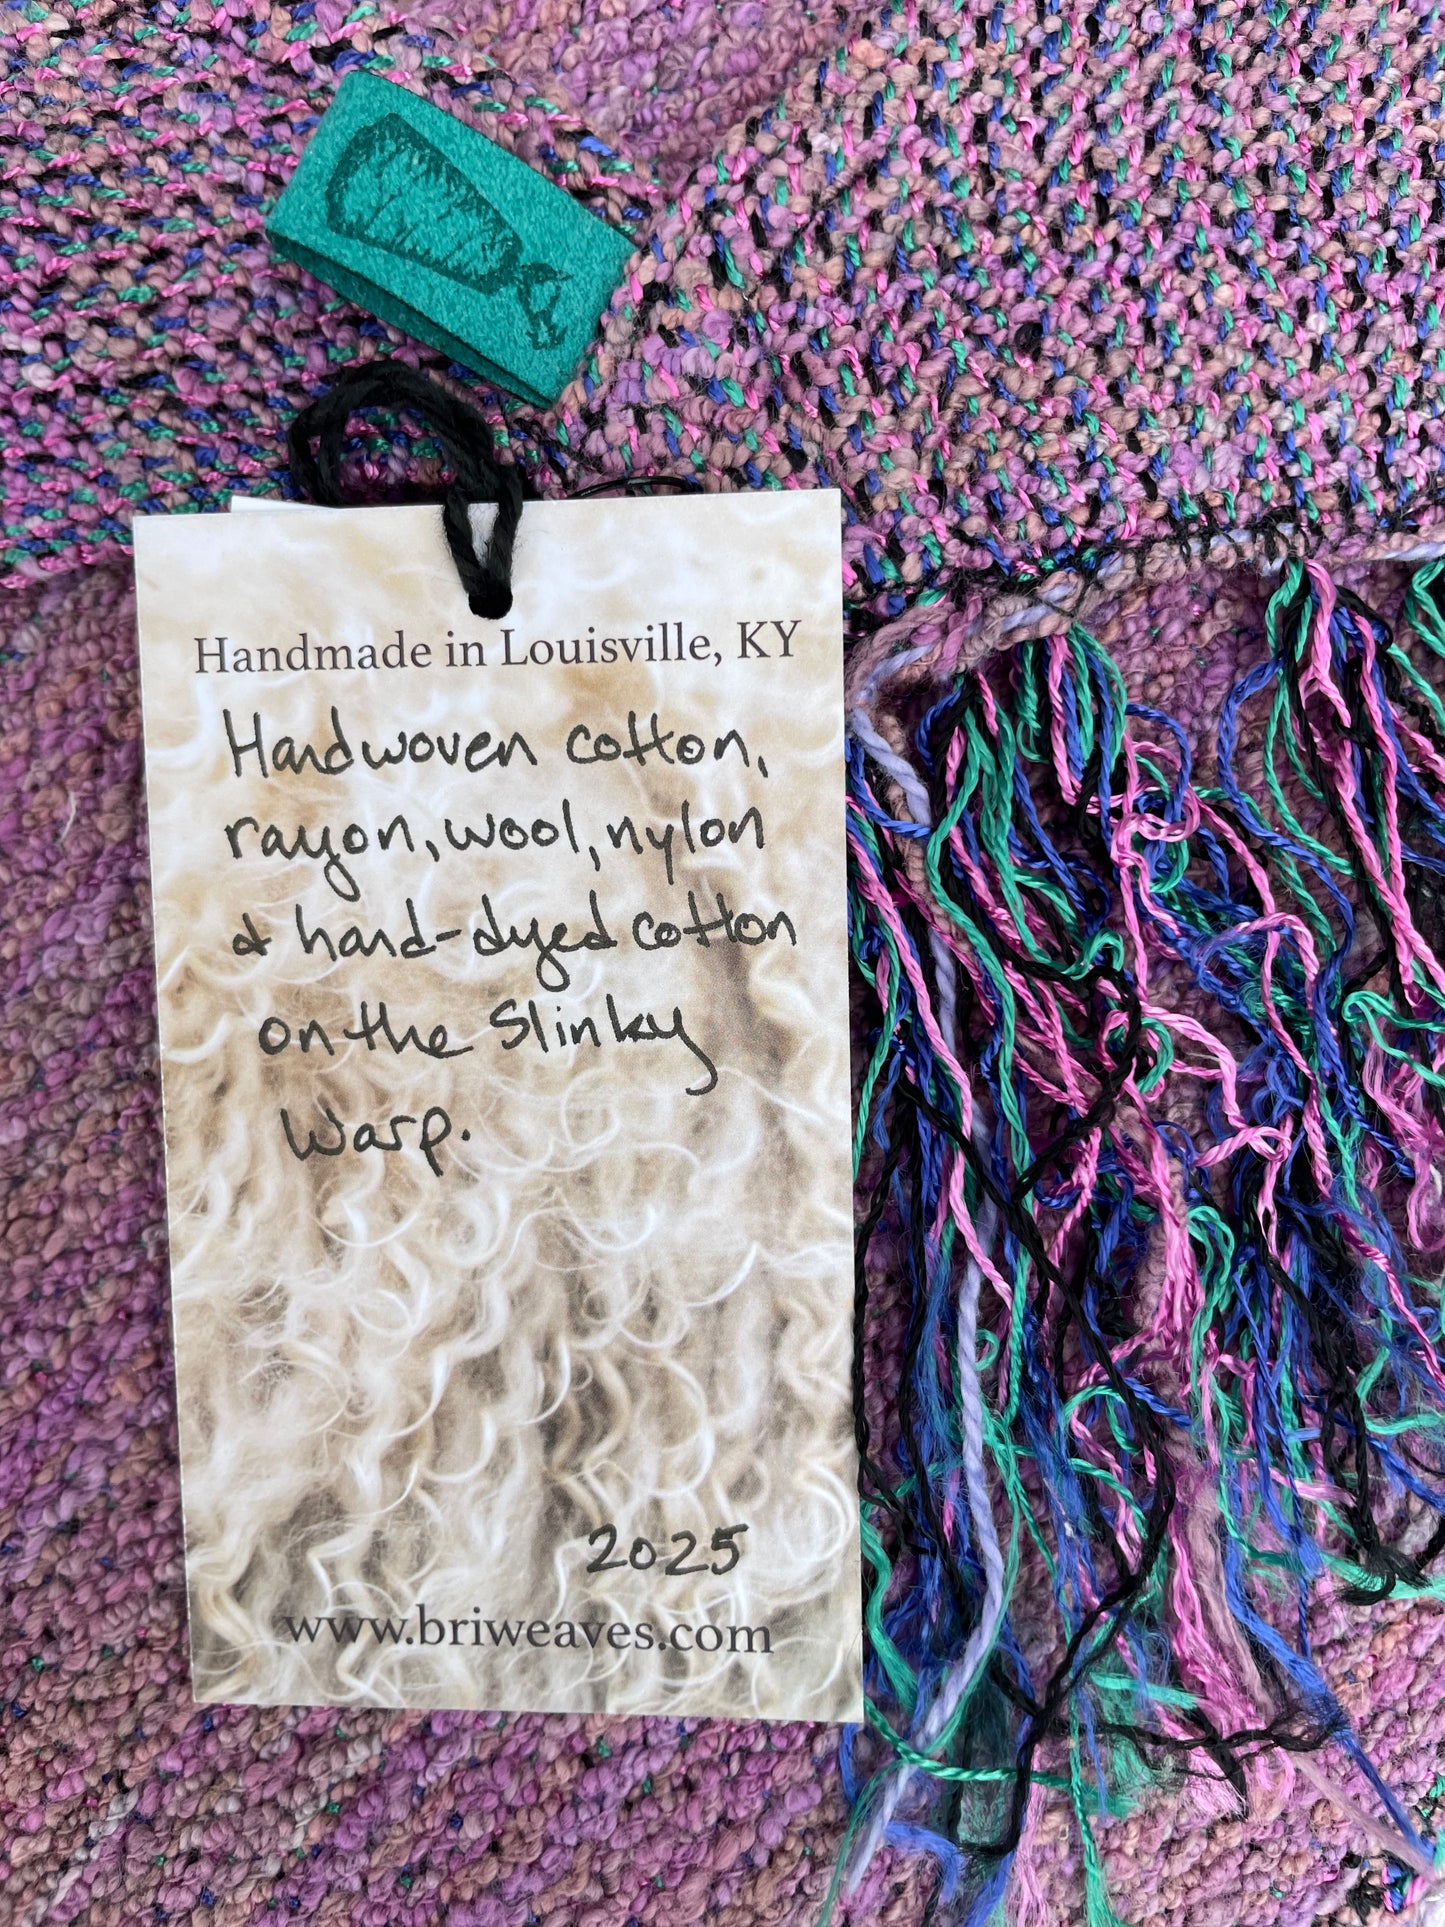 Handmade in Louisville, KY
Handwoven cotton,
rayon, wool, nylon
& hand-dyed cotton
on the Slinky
Warp.
2025
www.briweaves.com